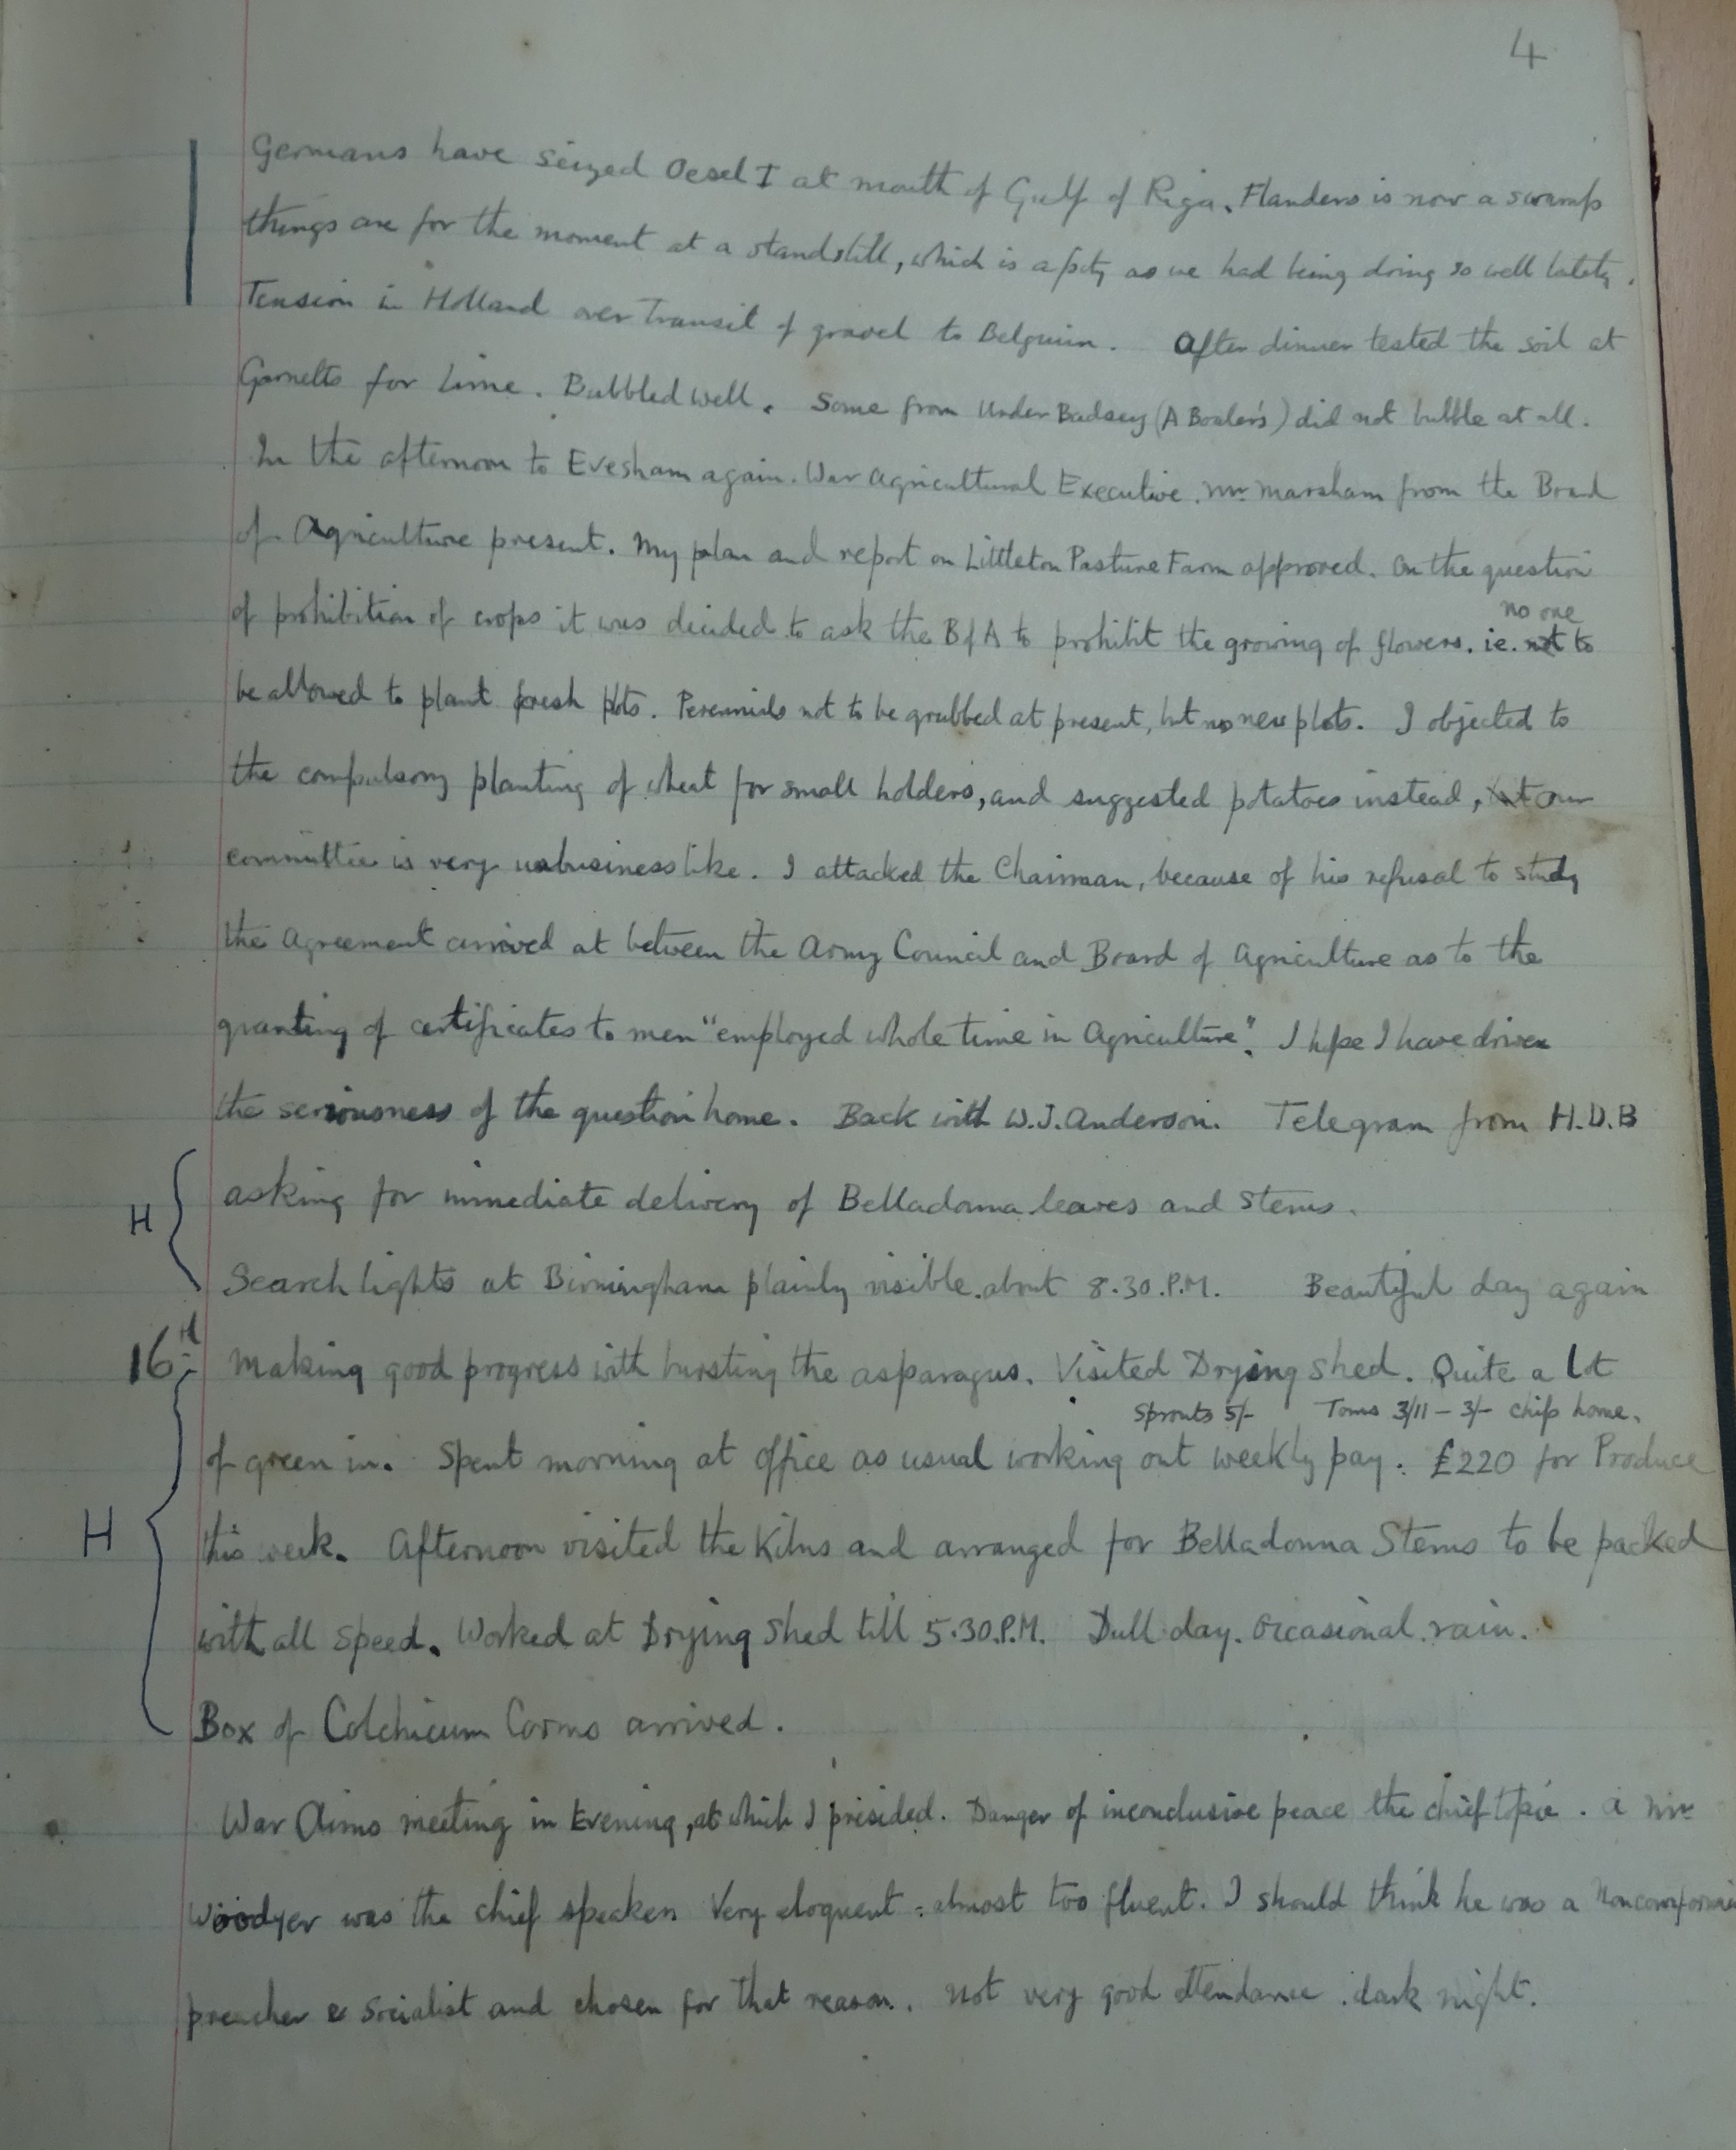 4
Germans have seized Oesel I at mouth of Gulf of Riga. Flanders is now a swamp
things are for the moment at a standstill, which is a pity as we had being doing so well lately.
Tension in Holland over Transit of gravel to Belguim. After dinner tested the soil at
for Lime. Bubbled well. Some from Under Badsey (A ) did not bubble at all.
In the afternoon to Evesham again. War Agricultural Executive. Mr. Marsham from the Board
of Agriculture present. My plan and report on Littleton Pasture Farm approved. On the question
no one
of prohibition of crops it was decided to ask the B of A to prohibit the growing of flowers. ie. not to
be allowed to plant fresh plots. Perennials not to be grubbed at present, but no new plots. I objected to
the compulsory planting of wheat for small holders, and suggested potatoes instead, but our
committee is very unbusinesslike. I attacked the Chairman, because of his refusal to study
the Agreement arrived at between the Army Council and Board of Agriculture as to the
granting of certificates to men "employed whole time in Agriculture". I hope I have driven
the seriousness of the question home. Back with W.J. Anderson. Telegram from H.D.B
H asking for immediate delivery of Belladonna leaves and stems.
Searchlights at Birmingham plainly visible about 8.30.P.M. Beautiful day again
16th Making good progress with bursting the asparagus. Visited Drying shed. Quite a lot
Sprouts 5/- Toms 3/11 - 3/- chip home.
of green in. Spent morning at office as usual working out weekly pay. £220 for Produce
H this week. Afternoon visited the Kilns and arranged for Belladonna Stems to be packed
with all speed. Worked at Drying Shed till 5.30.P.M. Dull day. Occasional rain.
Box of Colchicum Corms arrived.
War Aims meeting in Evening, at which I presided. Danger of inconclusive peace the chief topic. A Mr
Woodyer was the chief speaker. Very eloquent - almost too fluent. I should think he was a
preacher & Socialist and chosen for that reason. Not very good attendance. dark night.